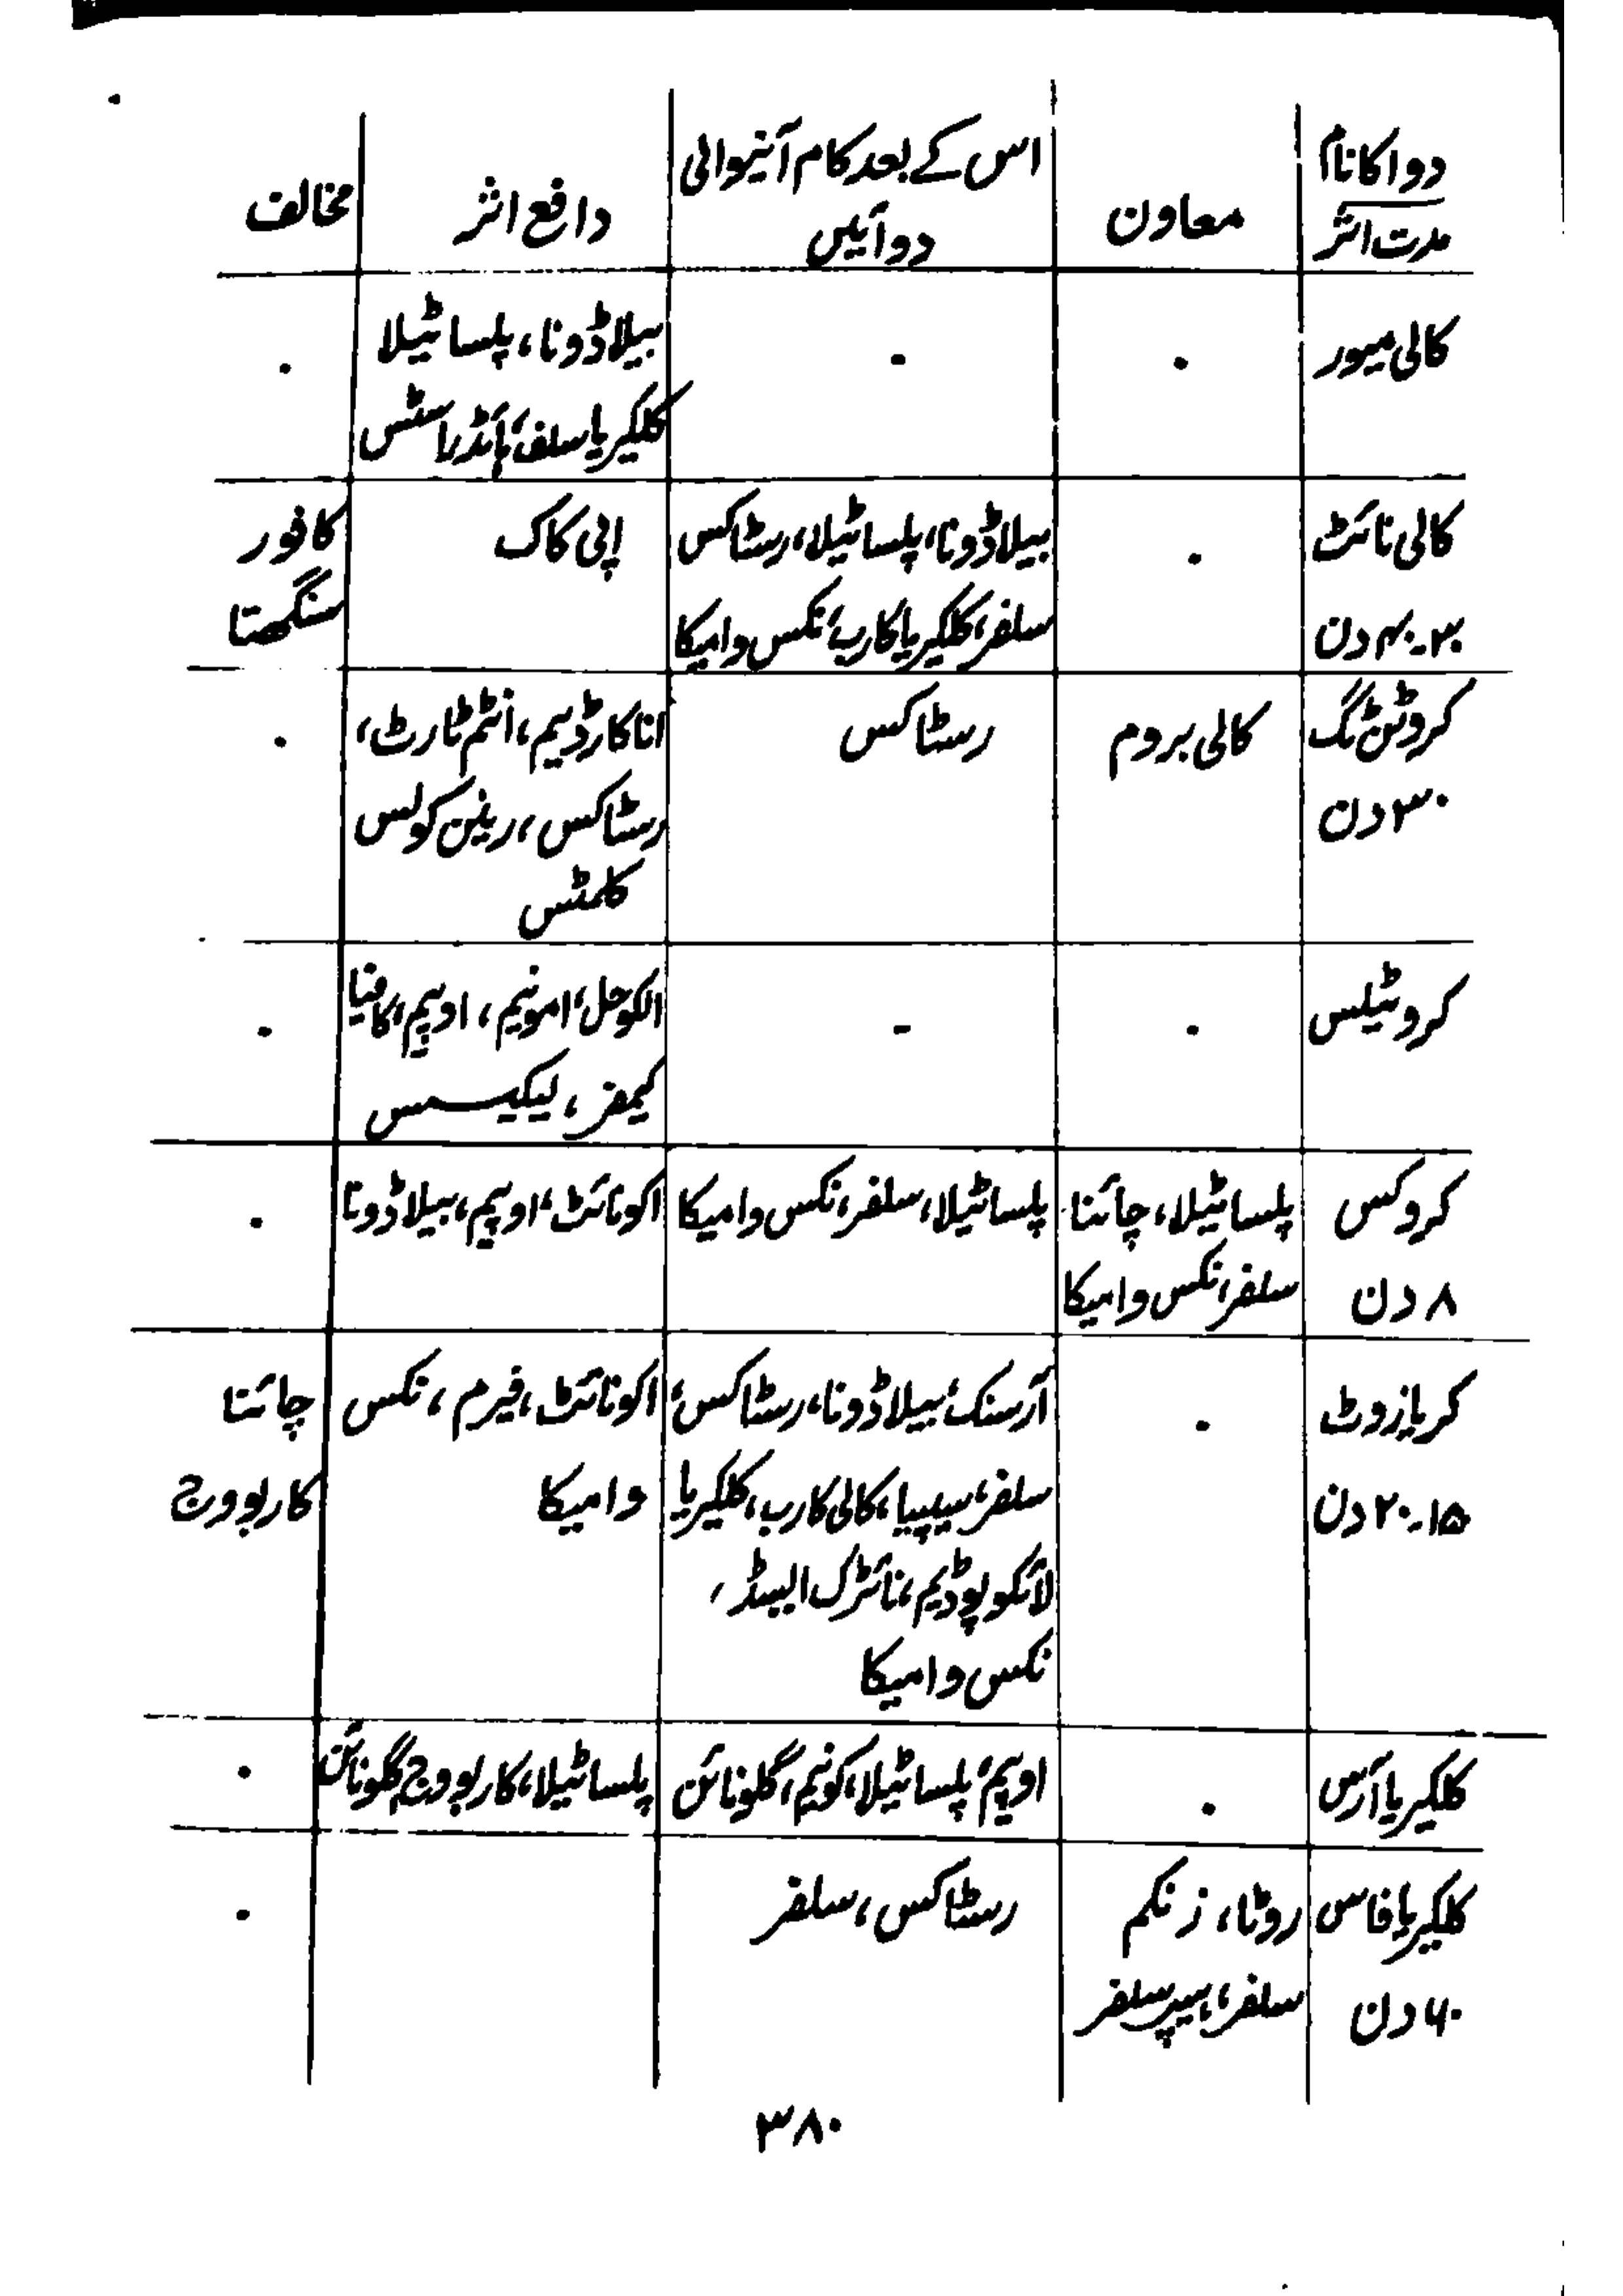 دوا کا نام
مدت اثر
معاون
اس کے بعد کام آنیوالی
دوائیں
دافع اثر
مخالف
کالی میور
۰
۰
بیلاڈونا، پلساٹیلا
کلکیریا سلف، ہائڈراسٹس
۰
کالی نائٹ
۳۰۔۴۰ دن
۰
بیلاڈونا، پلساٹیلا، رسٹاکس
سلفر، کلکیریا کارب، نکس وامیکا
اپی کاک
کافور
سنگھتا
کروٹن ٹگ
۳۰ دن
کالی بروم
رسٹاکس
اناکارڈیم، انٹم ٹارٹ،
رسٹاکس، رینن کولس
کلمٹس
۰
کروٹیلس
۰
۰
الکوحل، امونیم، اوپیم، کافیا
کیمفر، لیکیسس
۰
کروکس
۸ دن
پلساٹیلا، چائنا
سلفر، نکس وامیکا
پلساٹیلا، سلفر، نکس وامیکا
اکونائٹ، اوپیم، بیلاڈونا
۰
کریازوٹ
۱۵۔۲۰ دن
۰
آرسنک، بیلاڈونا، رسٹاکس،
سلفر، سیپیا، کالی کارب، کلکیریا
لائکوپوڈیم، نائٹرک ایسڈ،
نکس وامیکا
اکونائٹ، فیرم، نکس
وامیکا
چائنا
کاربوویج
کلکیریا آرس
۰
اوپیم، پلساٹیلا، کونیم، گلونائن
پلساٹیلا، کاربوویج، گلونائن
۰
کلکیریا فاس
۶۰ دن
روٹا، زنکم
سلفر، ہیپر سلفر
رسٹاکس، سلفر
۰
۳۸۰